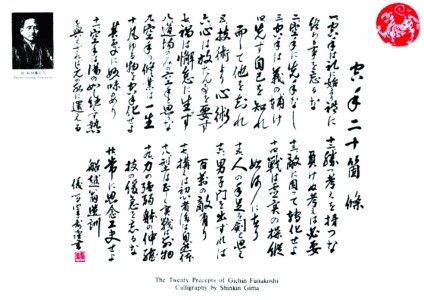 空手二十箇條
一空手は礼に始まり礼に
終る事を忘るな
二空手に先手なし
三空手は義の輔け
四先づ自己を知れ
而して他を知れ
五技術より心術
六心は放たん事を要す
七禍は懈怠に生ず
八道場のみの空手と思ふな
九空手の修業は一生
十凡ゆる物を空手化せよ
其處に妙味あり
十一空手は湯の如し絶えず熱
を與えざれば元の水に還る
十二勝つ考えは持つな
負けぬ考えは必要
十三敵に因って轉化せよ
十四戦は虚実の操縦
如何に在り
十五人の手足を剣と思へ
十六男子門を出づれば
百万の敵あり
十七構えは初心者に後は自然体
十八型は正しく実戦は別物
十九力の強弱体の伸縮
技の緩急を忘るな
二十常に思念工夫せよ
船越翁遺訓
The Twenty Precepts of Gichin Funakoshi
Calligraphy by Shinkin Gima